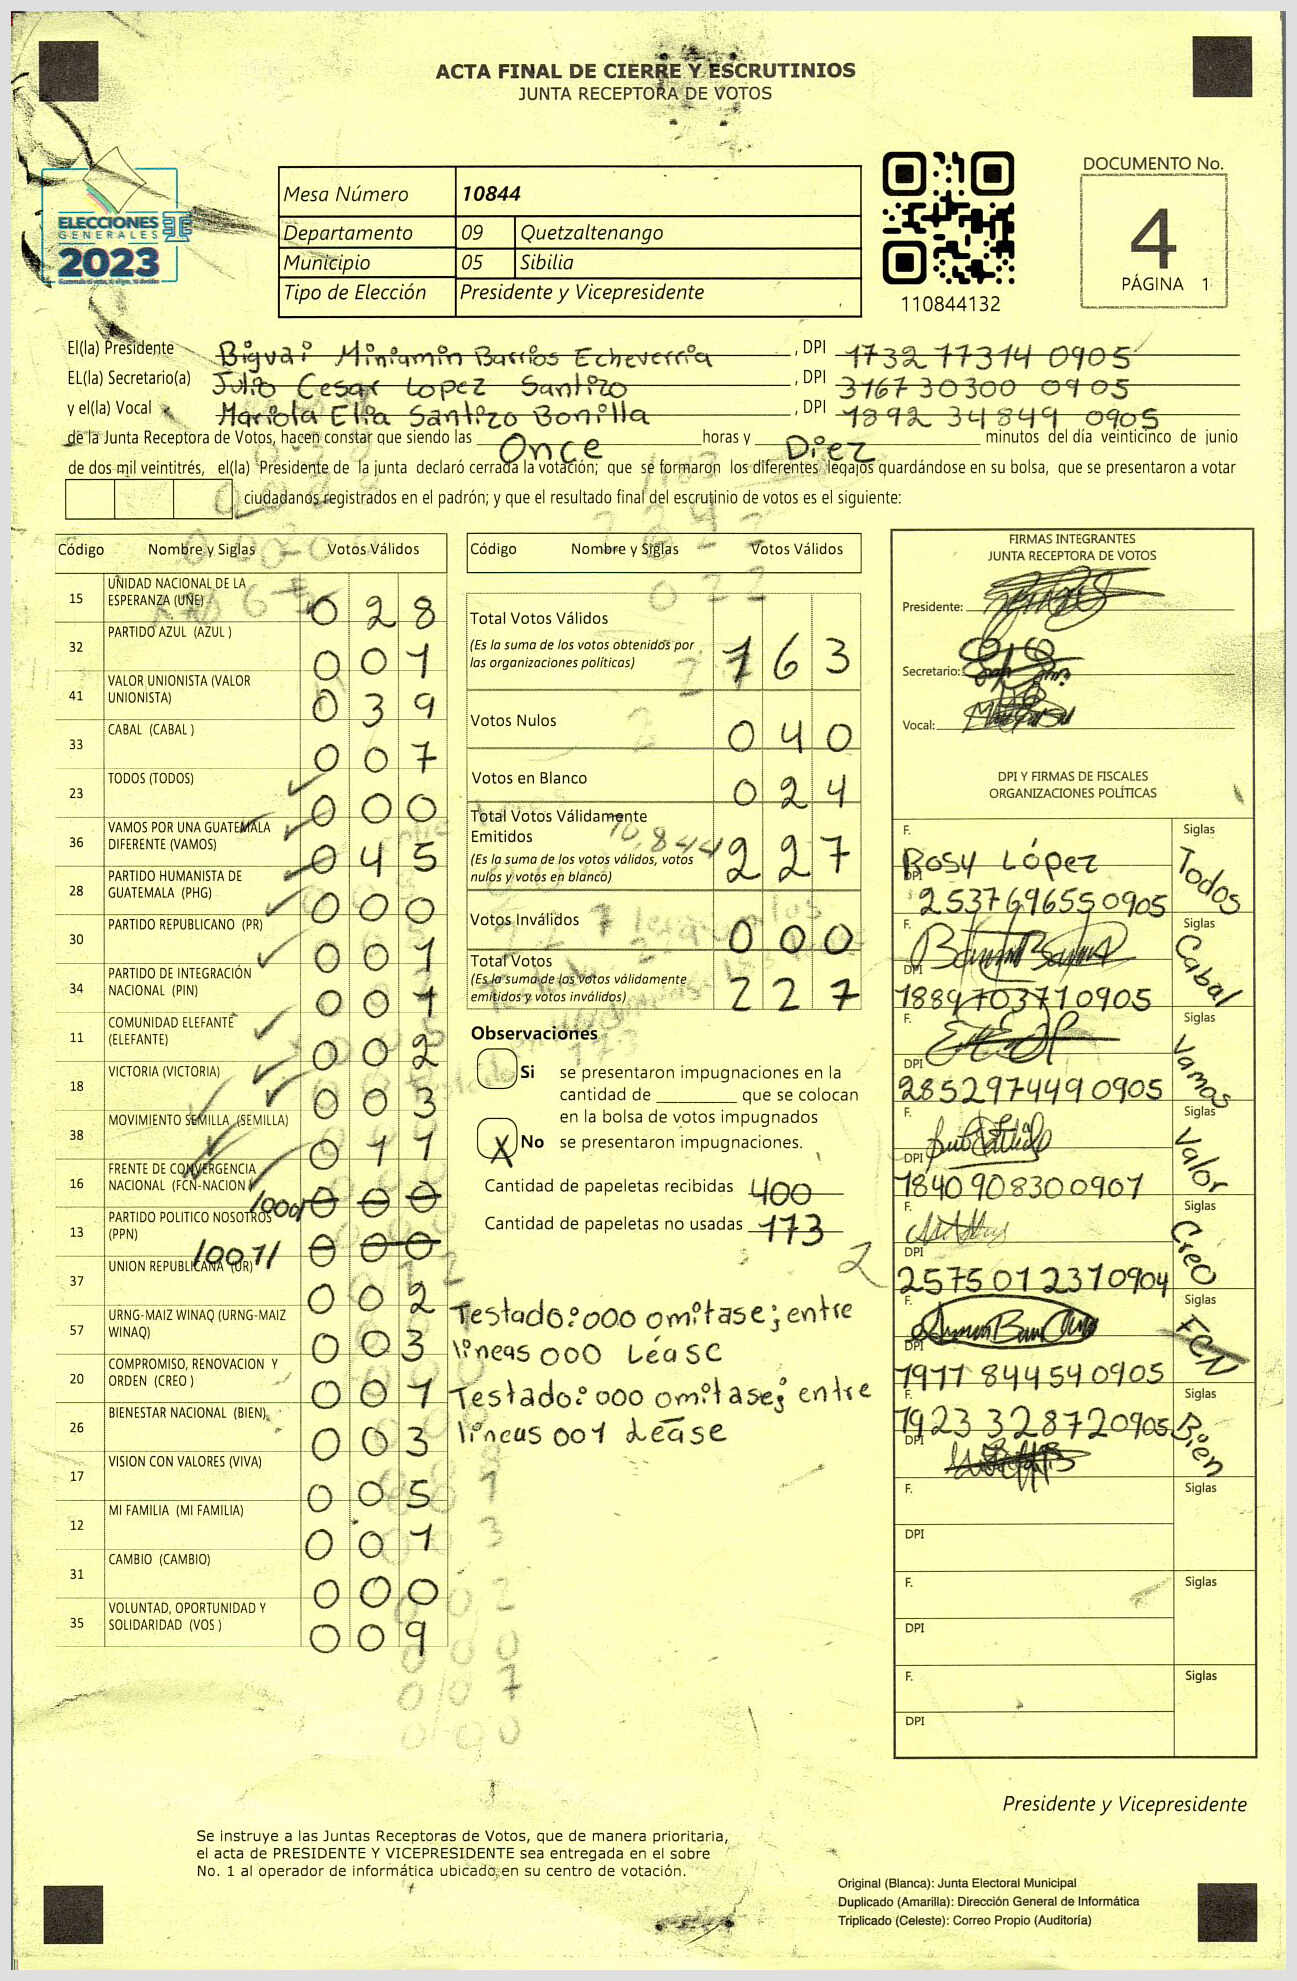 ACTA FINAL DE CIERRE Y ESCRUTINIOS
JUNTA RECEPTORA DE VOTOS
ELECCIONES
GENERALES
2023
Mesa Número 10844
Departamento 09 Quetzaltenango
Municipio 05 Sibilia
Tipo de Elección Presidente y Vicepresidente
110844132
DOCUMENTO No.
4
PÁGINA 1
El(la) Presidente Bigvai Miniamin Barrios Echeverria, DPI 1732 77314 0905
EL(la) Secretario(a) Julio Cesar Lopez Santizo, DPI 3167 30300 0905
y el(la) Vocal Mariola Elia Santizo Bonilla, DPI 1892 34849 0905
de la Junta Receptora de Votos, hacen constar que siendo las Once horas y Diez minutos del día veinticinco de junio
de dos mil veintitrés, el(la) Presidente de la junta declaró cerrada la votación; que se formaron los diferentes legajos guardándose en su bolsa, que se presentaron a votar
ciudadanos registrados en el padrón; y que el resultado final del escrutinio de votos es el siguiente:
Código Nombre y Siglas Votos Válidos
15 UNIDAD NACIONAL DE LA
ESPERANZA (UNE) 028
32 PARTIDO AZUL (AZUL ) 001
41 VALOR UNIONISTA (VALOR
UNIONISTA) 039
33 CABAL (CABAL ) 007
23 TODOS (TODOS) 000
36 VAMOS POR UNA GUATEMALA
DIFERENTE (VAMOS) 045
28 PARTIDO HUMANISTA DE
GUATEMALA (PHG) 000
30 PARTIDO REPUBLICANO (PR) 001
34 PARTIDO DE INTEGRACIÓN
NACIONAL (PIN) 001
11 COMUNIDAD ELEFANTE
(ELEFANTE) 002
18 VICTORIA (VICTORIA) 003
38 MOVIMIENTO SEMILLA (SEMILLA) 011
16 FRENTE DE CONVERGENCIA
NACIONAL (FCN-NACION) 000
13 PARTIDO POLITICO NOSOTROS
(PPN) 000
37 UNION REPUBLICANA (UR) 002
57 URNG-MAIZ WINAQ (URNG-MAIZ
WINAQ) 003
20 COMPROMISO, RENOVACION Y
ORDEN (CREO ) 001
26 BIENESTAR NACIONAL (BIEN) 003
17 VISION CON VALORES (VIVA) 005
12 MI FAMILIA (MI FAMILIA) 001
31 CAMBIO (CAMBIO) 000
35 VOLUNTAD, OPORTUNIDAD Y
SOLIDARIDAD (VOS ) 009
Código Nombre y Siglas Votos Válidos
Total Votos Válidos
(Es la suma de los votos obtenidos por
las organizaciones políticas) 163
Votos Nulos 040
Votos en Blanco 024
Total Votos Válidamente
Emitidos
(Es la suma de los votos válidos, votos
nulos y votos en blanco) 227
Votos Inválidos 000
Total Votos
(Es la suma de los votos válidamente
emitidos y votos inválidos) 227
Observaciones
Si se presentaron impugnaciones en la
cantidad de ________ que se colocan
en la bolsa de votos impugnados
X No se presentaron impugnaciones.
Cantidad de papeletas recibidas 400
Cantidad de papeletas no usadas 173
Testado:000 omitase; entre
lineas 000 Léase
Testado: 000 omitase; entre
lineas 001 Léase
FIRMAS INTEGRANTES
JUNTA RECEPTORA DE VOTOS
Presidente:
Secretario:
Vocal:
DPI Y FIRMAS DE FISCALES
ORGANIZACIONES POLÍTICAS
F. Rosy López Siglas Todos
DPI 2537696550905
F. Siglas Cabal
DPI 1889703710905
F. Siglas Vamos
DPI 2852974490905
F. Siglas Valor
DPI 1840908300907
F. Siglas Creo
DPI 2575012310904
F. Siglas FCN
DPI 1911844540905
F. 1923328720905 Siglas Bien
DPI
F. Siglas
DPI
F. Siglas
DPI
F. Siglas
DPI
Presidente y Vicepresidente
Se instruye a las Juntas Receptoras de Votos, que de manera prioritaria,
el acta de PRESIDENTE Y VICEPRESIDENTE sea entregada en el sobre
No. 1 al operador de informática ubicado en su centro de votación.
Original (Blanca): Junta Electoral Municipal
Duplicado (Amarilla): Dirección General de Informática
Triplicado (Celeste): Correo Propio (Auditoría)